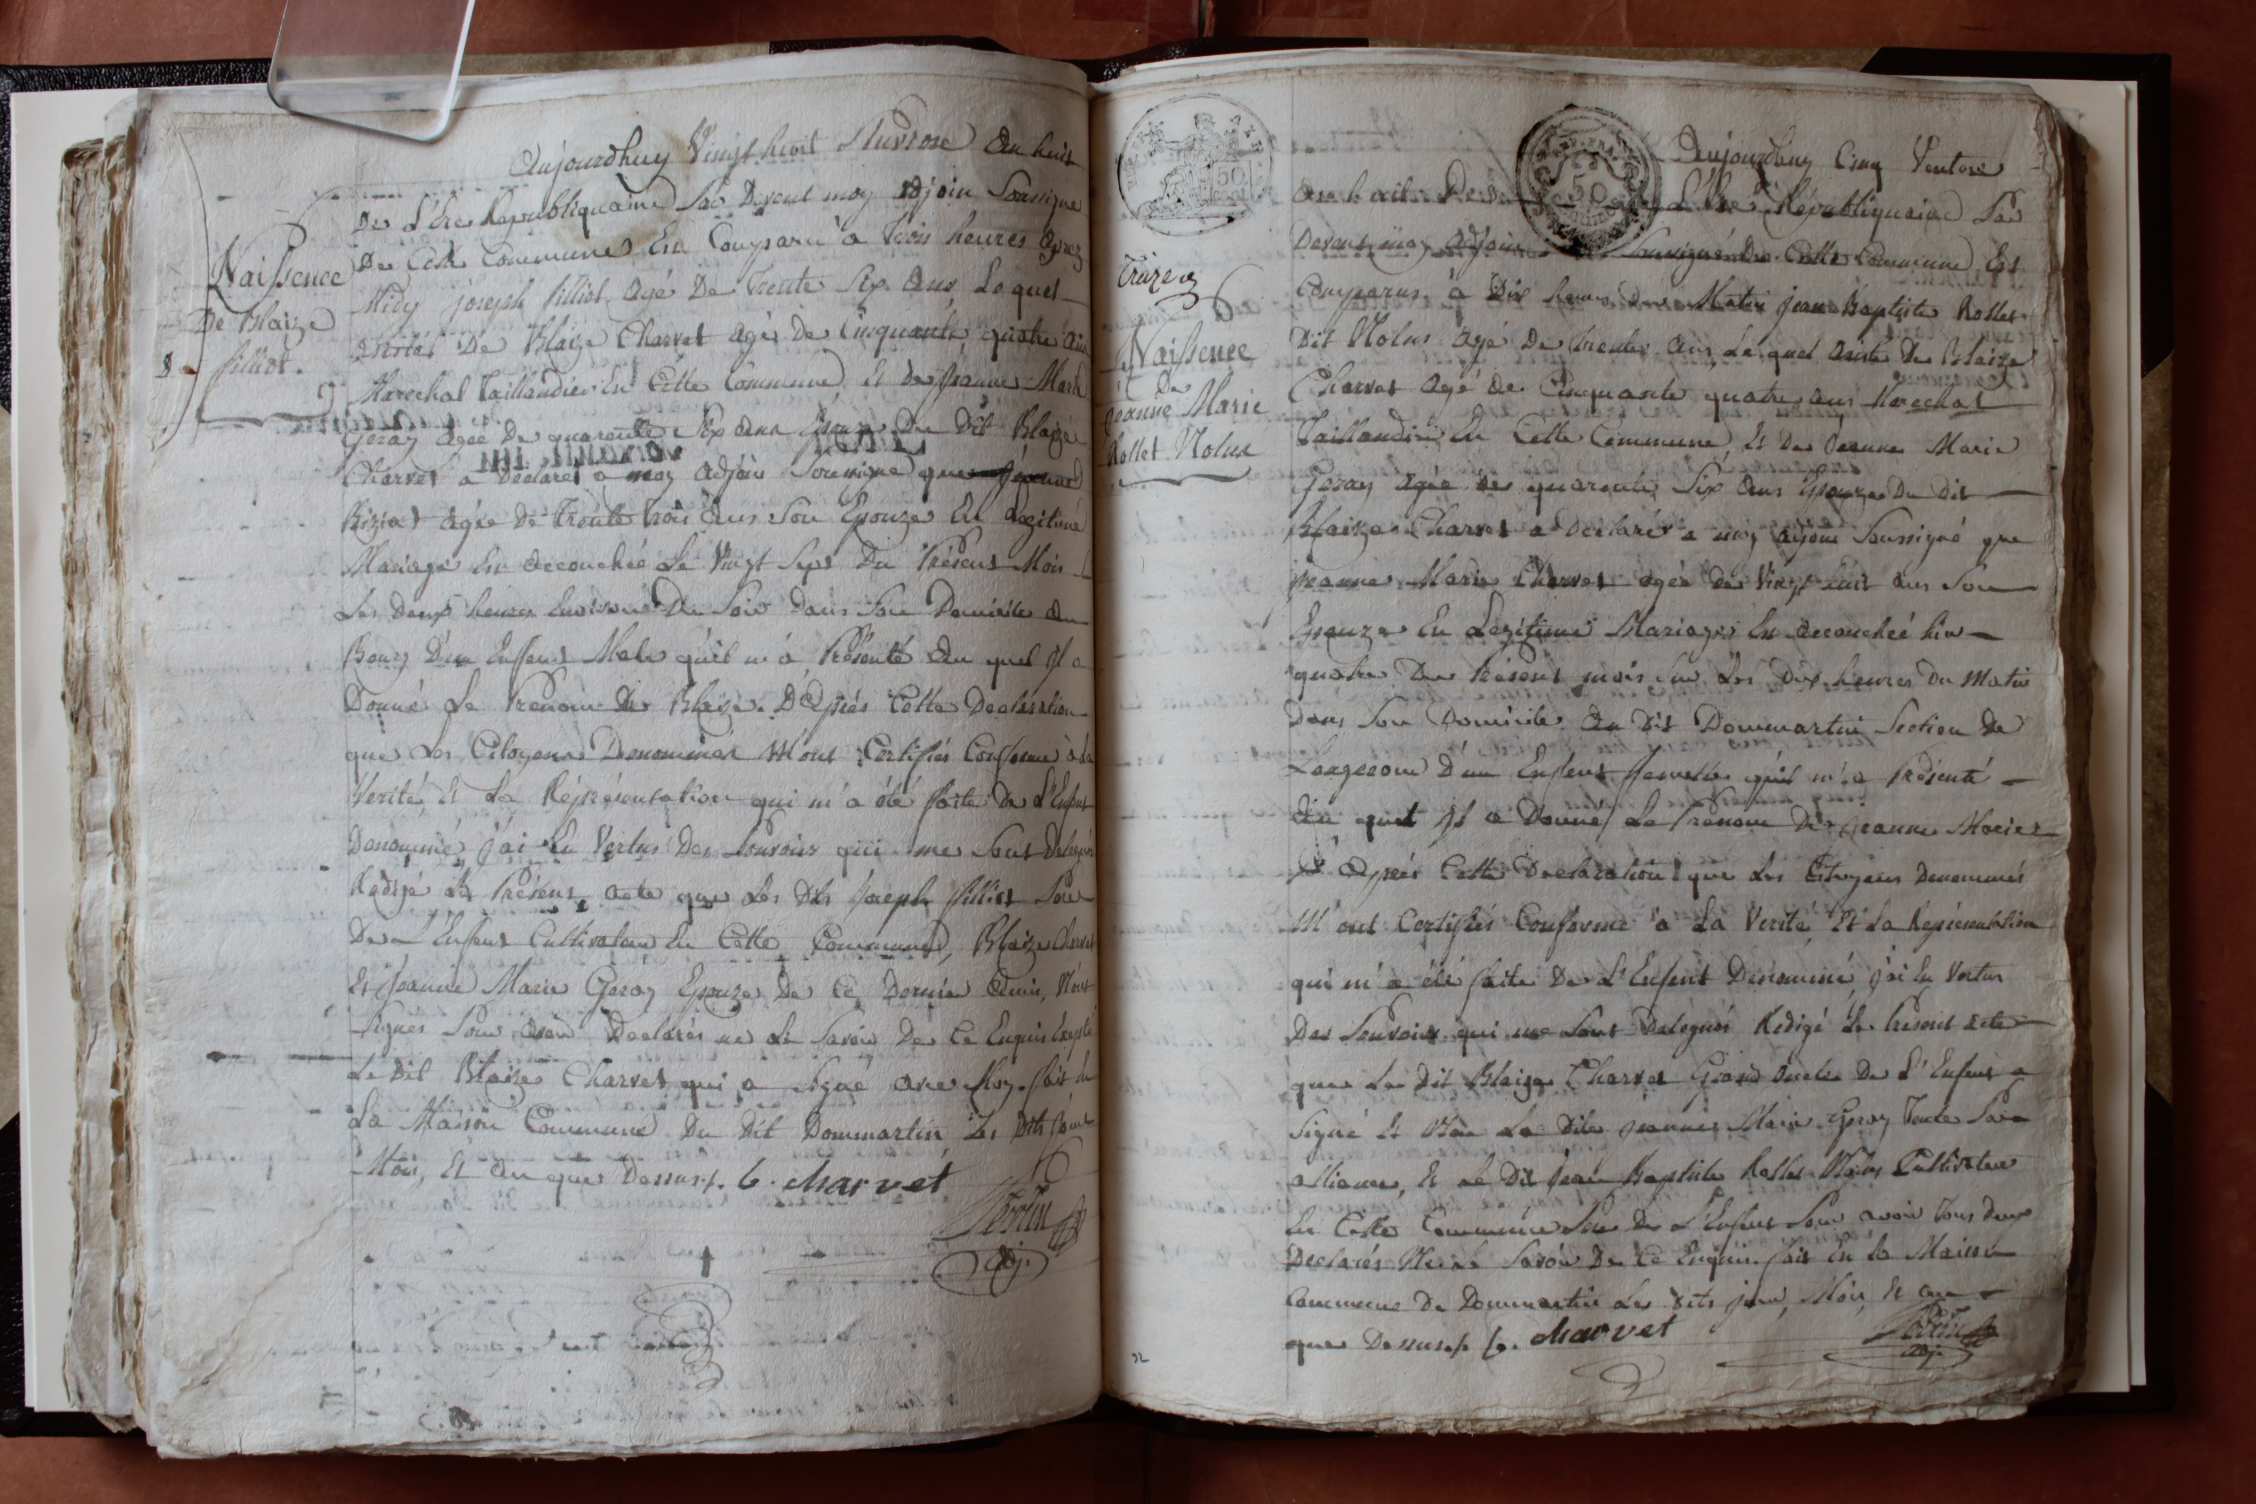 Aujourdhuy Vingt huit Nivose An huit
De L'Ere Republiquaine Par Devent moy adjoin Soussigne
De Cette Commune Est Comparu a Trois heures Apres
Midy joseph filliot Agé De Trente Six Ans Lequel
assisté De Blaize Charvet Agé De Cinquante quatre Ans
Marechal Taillandier En Cette Commune Et De Jeanne Marie
Geray Agée De quarente Six Ans Epouze Du Dit Blaize
Charvet a Declaré a moy Adjoin Soussigne que
Agée De Trente trois Ans Son Epouze En Legitime
Mariage Est Accouchée Le Vingt Sept Du Present Mois
Les Deux heures Environt Du Soir Dans Son Domicile Au
Bourg D'un Enffent Male qu'il m'a Présenté Au quel Il a
Donné Le Prenom De Blaize. D'Après Cette Declaration
que Les Citoyens Denommés M'ont Certifiés Conforme à La
Verité, Et La Réprésentation qui m'a été faite De L'Enfent
Denommé j'ai En Vertus Des Pouvoirs qui me Sont Delegués
Redigé Le Présent Acte que Les Dits Joseph filliot Père
De L'Enfent Cultivateur En Cette Commune, Blaize Charvet
Et Jeanne Marie Geray Epouze De Ce Dernier N'ont
Signés Pour Avoir Declarés ne Le Savoir De Ce Enquis Excepté
Le Dit Blaize Charvet qui a Signé Avec Moy. fait En
La Maison Commune Du Dit Dommartin Les Dits jour
Mois, Et An que Dessus. b. charvet
adj.
Naissence
De Blaize
filliot.
8
Treize
Naissence
De
Jeanne Marie
Rollet Nolus
Aujourdhuy Cinq Ventose
An huit De L'Ere Républiquaine Par
Devent moy Adjoin Soussigné De Cette Commune Est
Comparus à Dix heures Du Matin Jean Baptiste Rollet
Dit Nolus Agé De trente Ans, Le quel assisté De Blaize
Charvet Agé De Cinquante quatre Ans Marechal
Taillandier En Cette Commune, Et De Jeanne Marie
Geray Agée De quarente Six Ans Epouze Du Dit
Blaize Charvet a Declaré a moy Adjoin Soussigné que
Jeanne Marie Charvet agée De Vingt huit Ans Son
Epouze En Legitime Mariage Est Accouchée hier
quatre Du Présent mois Sur Les Dix heures Du Matin
Dans Son Domicile Au Dit Dommartin Section De
D'un Enfent femelle qu'il m'a Présenté
Au quel Il a Donné Le Prenom De Jeanne Marie
D'Après Cette Declaration que Les Citoyens Denommés
M'ont Certifiés Conforme a La Verité, Et La Représentation
qui m'a été faite De L'Enfent Denommé, j'ai En Vertus
Des Pouvoirs qui me Sont Delegués Redigé Le Présent Acte
que Le Dit Blaize Charvet Grand Oncle De L'Enfent a
Signé Et Non La Dite Jeanne Marie Geray Tante Par
alliance, Et Le Dit Jean Baptiste Rollet Nolus Cultivateur
En Cette Commune Père De L'Enfent Pour avoir Tous Deux
Declarés Ne Le Savoir De Ce Enquis. fait En La Maison
Commune De Dommartin Les Dits jour, Mois, Et An
que Dessus. b. charvet
adj.